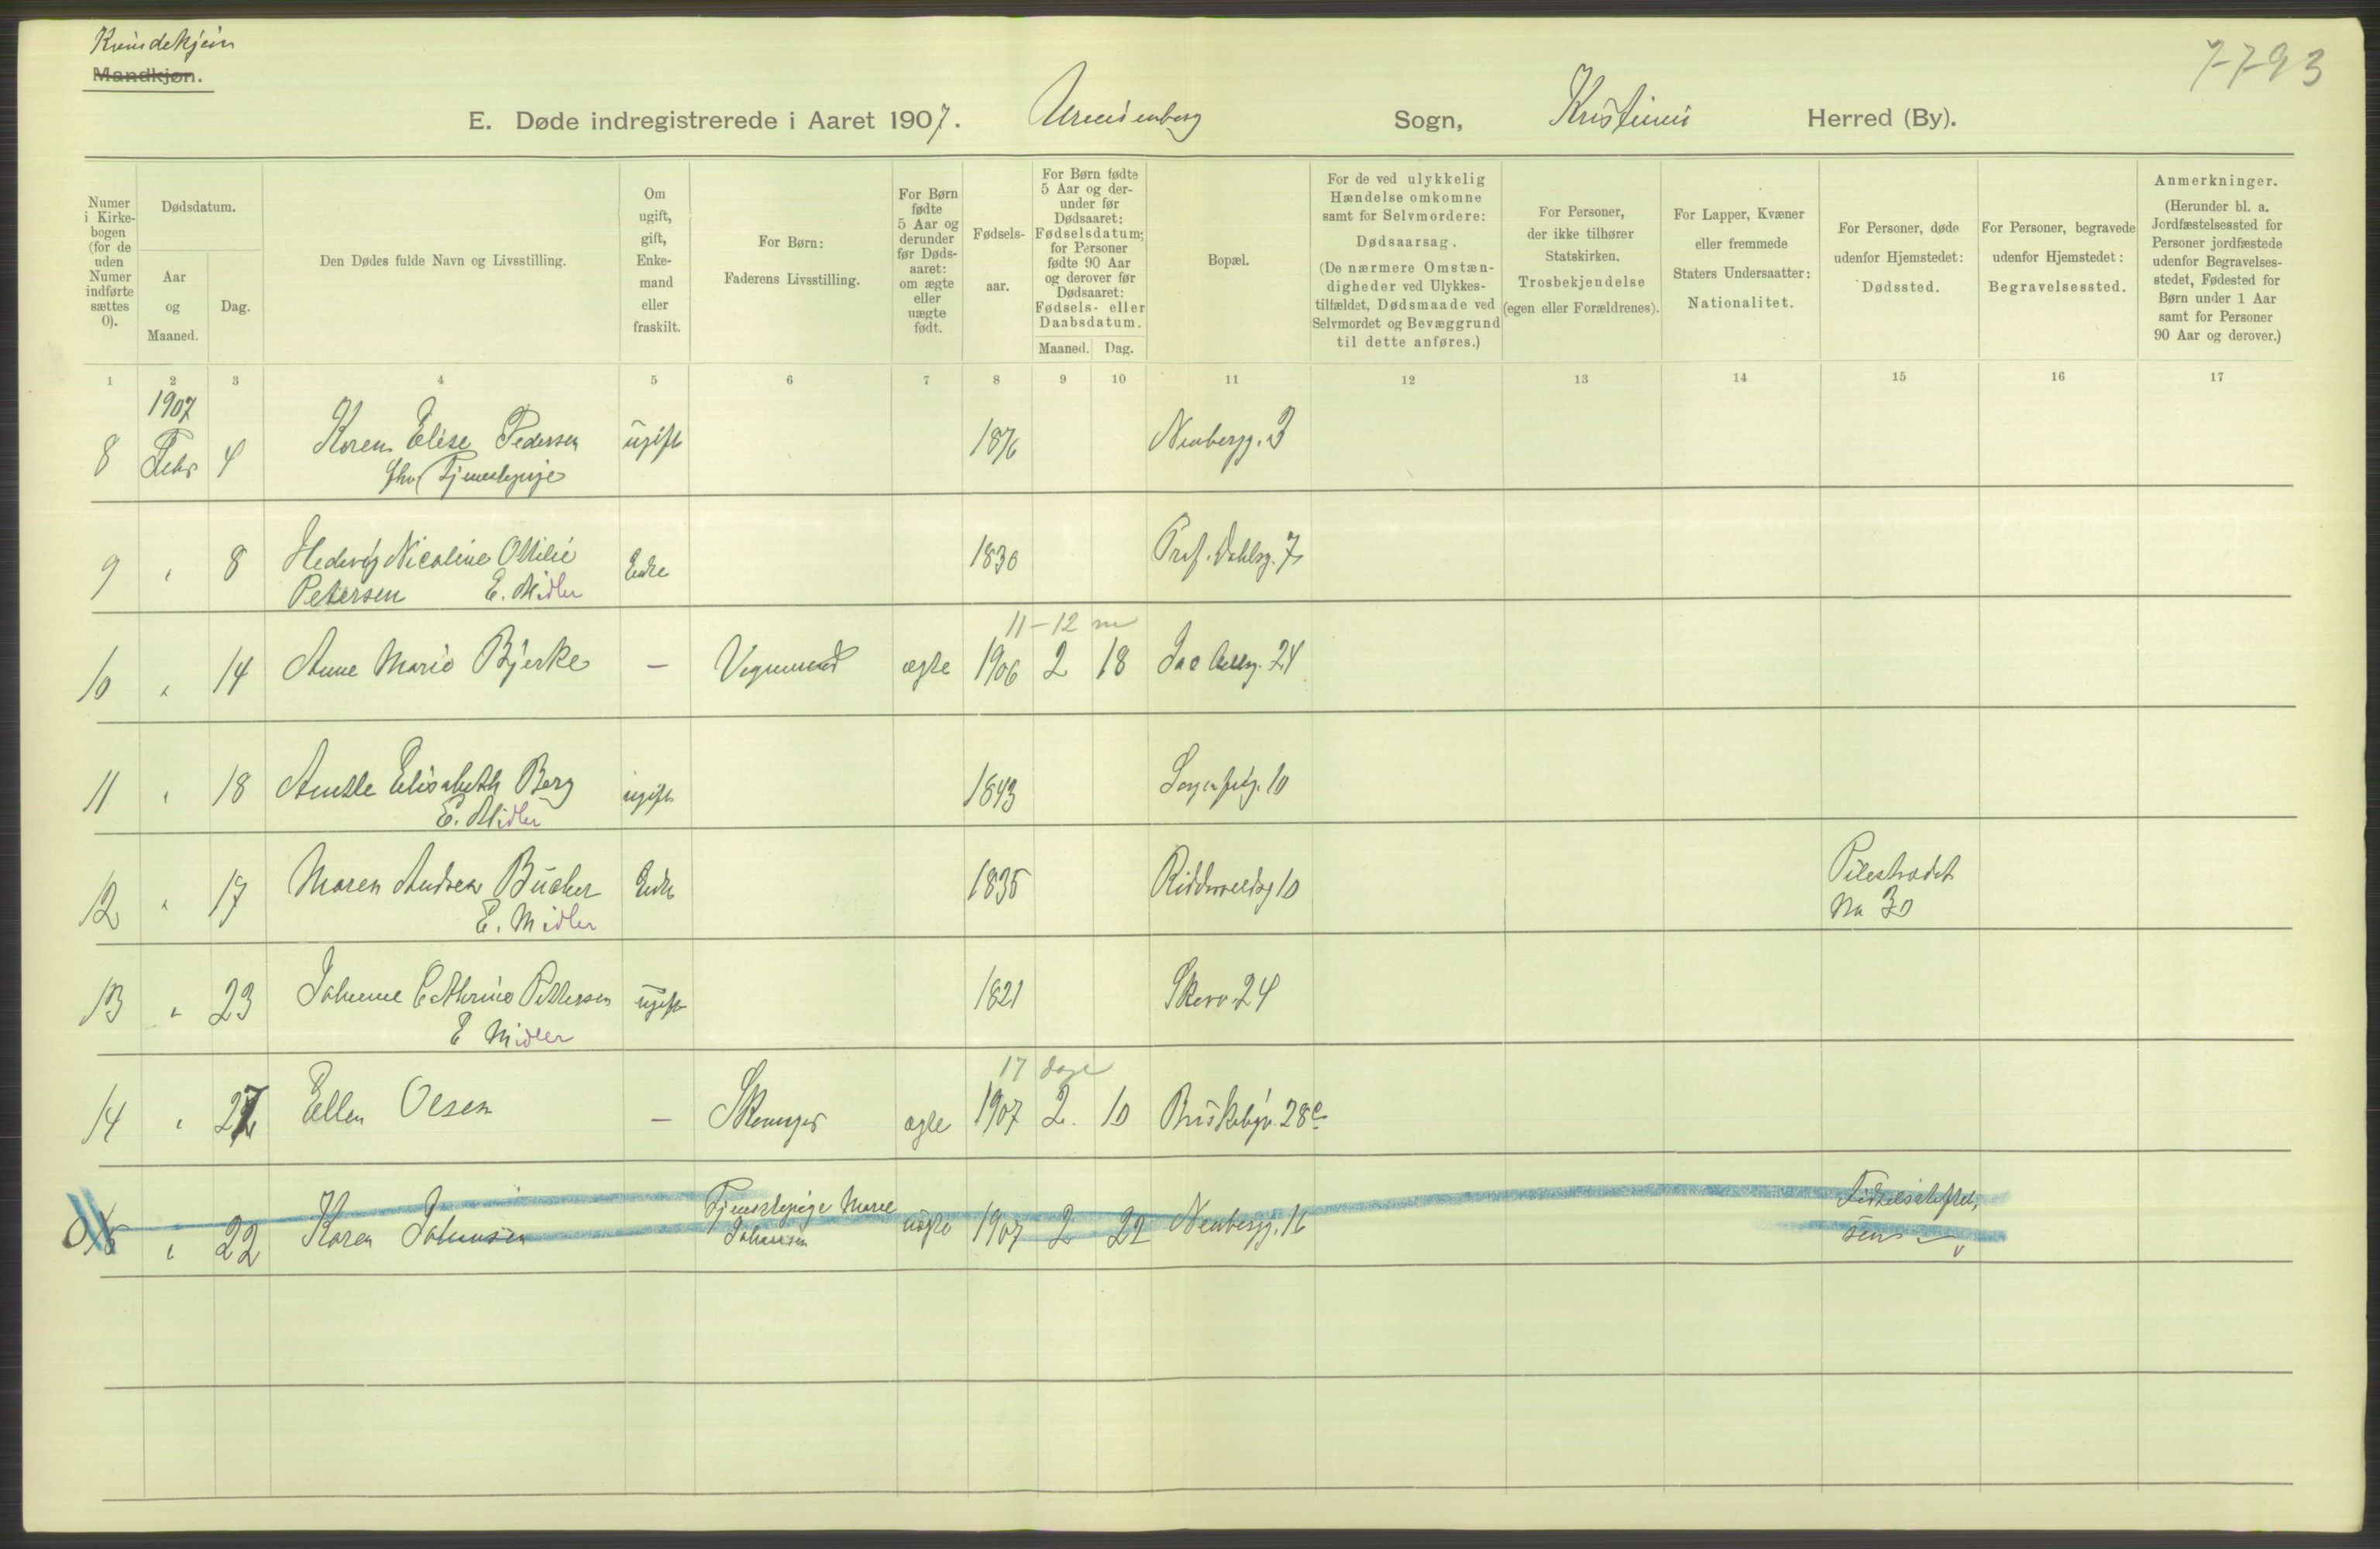 Kvindekjøn
Mandkjøn.
7793
E. Døde indregistrerede i Aaret 1907. Uranienborg Sogn, Kristiania Herred (By).
Numer i Kirkebogen (for de uden Numer indførte sættes 0).
Dødsdatum.
Aar og Maaned.
Dag.
Den Dødes fulde Navn og Livsstilling.
Om ugift, gift, Enkemand eller fraskilt.
For Børn: Faderens Livsstilling.
For Børn fødte 5 Aar og derunder før Dødsaaret: om ægte eller uægte født.
Fødselsaar.
For Børn fødte 5 Aar og derunder før Dødsaaret: Fødselsdatum; for Personer fødte 90 Aar og derover før Dødsaaret: Fødsels- eller Daabsdatum.
Maaned. Dag.
Bopæl.
For de ved ulykkelig Hændelse omkomne samt for Selvmordere: Dødsaarsag. (De nærmere Omstændigheder ved Ulykkestilfældet, Dødsmaade ved Selvmordet og Bevæggrund til dette anføres.)
For Personer, der ikke tilhører Statskirken, Trosbekjendelse (egen eller Forældrenes).
For Lapper, Kvæner eller fremmede Staters Undersaatter: Nationalitet.
For Personer, døde udenfor Hjemstedet: Dødssted.
For Personer, begravede udenfor Hjemstedet: Begravelsessted.
Anmerkninger. (Herunder bl. a. Jordfæstelsessted for Personer jordfæstede udenfor Begravelsesstedet, Fødested for Børn under 1 Aar samt for Personer 90 Aar og derover.)
1 2 3 4 5 6 7 8 9 10 11 12 13 14 15 16 17
1907
8 Febr 4 Karen Elise Pedersen ugift 1876 Neubergg. 3
fhv. Tjenestepige
9 " 8 Hedevig Nicoline Ottilie Enke 1830 Prof. Dahlsg. 7
Petersen E. Midler
11-12 m
10 " 14 Anne Marie Bjerke — Vognmand ægte 1906 2 18 Jac Aallsg. 24
11 " 18 Amalie Elisabeth Berg ugift 1843 10
E. Midler
12 " 17 Maren Andrea Bucher Enke 1835 Riddervoldsg 10 Pilestrædet
E. Midler No 30
13 " 23 Johanne Cathrine Pettersen ugift 1821 24
E Midler
17 dage
14 " 27 Ellen Olsen — ægte 1907 2. 10 Briskebyv. 28c
015 " 22 Karen Johansen Tjenestepige Marie Johansen uægte 1907 2 22 Neubergg. 16 Fødselsstiftelsen